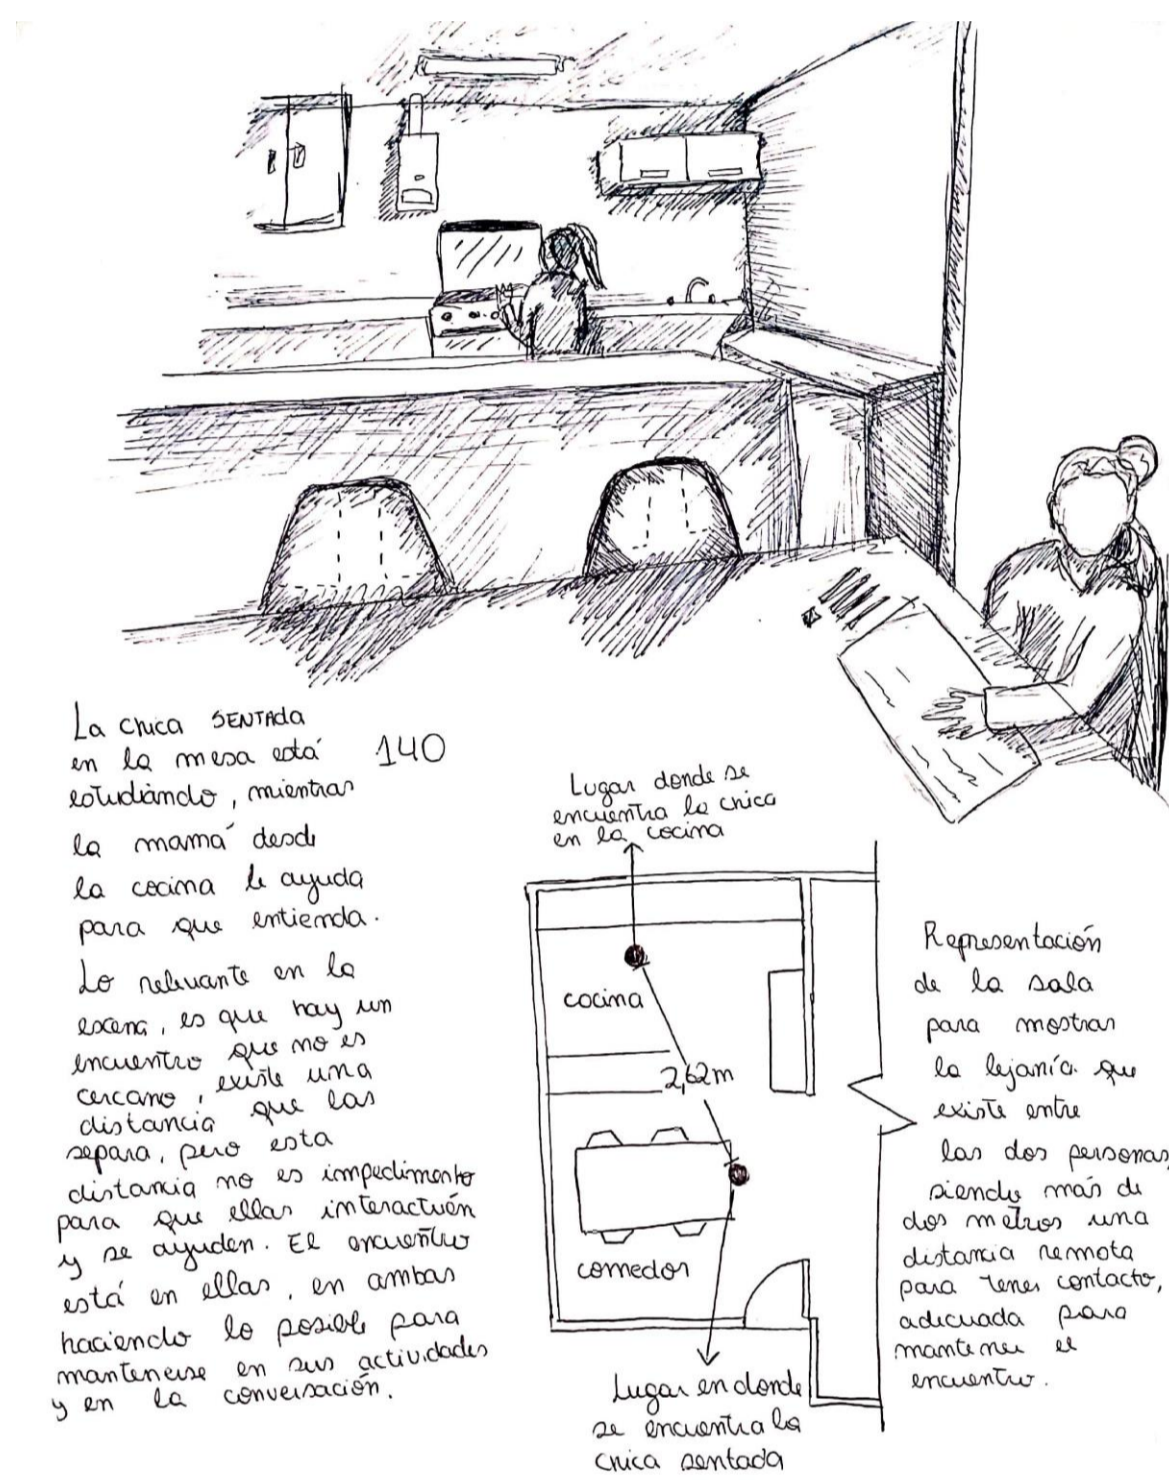 La chica SENTADA
en la mesa está
estudiando, mientras
la mamá desde
la cocina le ayuda
para que entienda.
Lo relevante en la
escena, es que hay un
encuentro que no es
cercano, existe una
distancia que las
separa, pero esta
distancia no es impedimento
para que ellas interactuén
y se ayuden. El encuentro
está en ellas, en ambas
haciendo lo posible para
mantenerse en sus actividades
y en la conversación.
140
Lugar donde se
encuentra la chica
en la cocina
cocina
2,62m
comedor
Lugar en donde
se encuentra la
chica sentada
Representación
de la sala
para mostrar
la lejanía que
existe entre
las dos personas,
siendo más de
dos metros una
distancia remota
para tener contacto,
adecuada para
mantener el
encuentro.